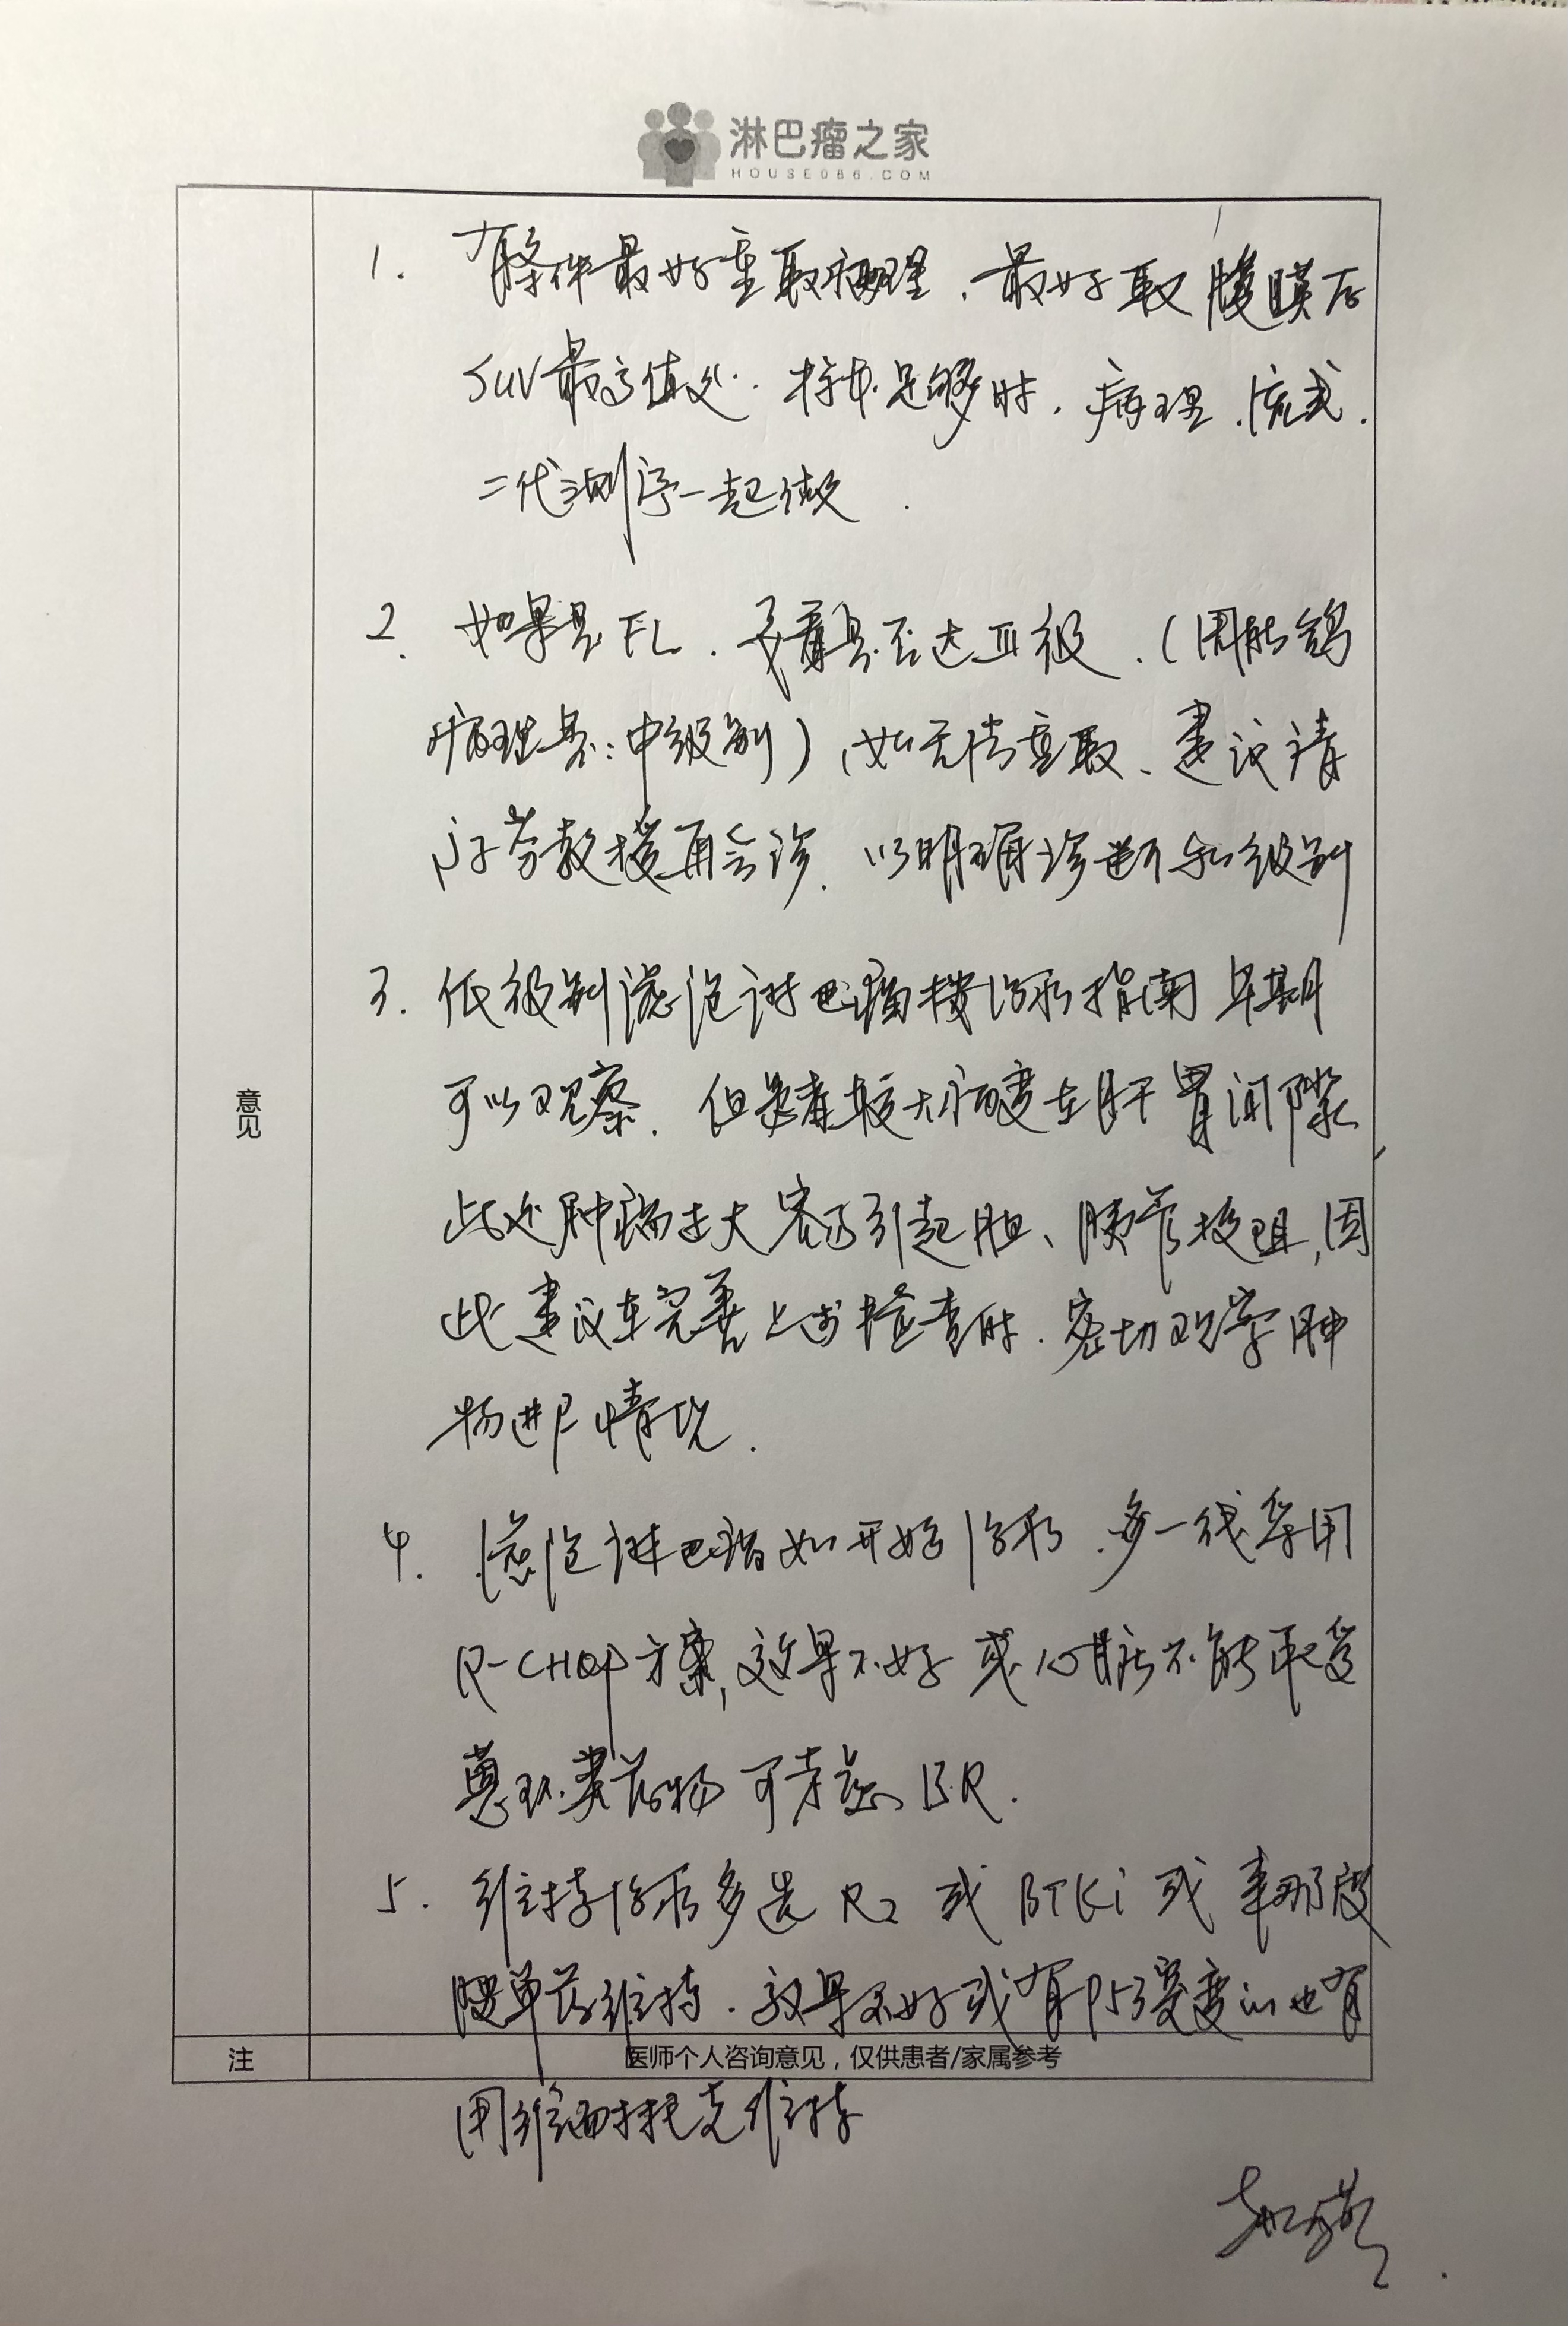 淋巴瘤之家
HOUSE086.COM
1. 有条件最好重取病理，最好取腹膜后
SUV最高值处. 标本足够时，病理、流式、
二代测序一起做.
2. 如果是FL，要看是否达Ⅲ级，(因
病理是:中级别)，如无法重取、建议请
教授再会诊，以明确诊断和级别
3. 低级别滤泡淋巴瘤按治疗指南早期
可以观察. 但患者较大病变在肝胃间隙，
此处肿瘤过大容易引起胆、胰管梗阻，因
此建议在完善上述检查时，密切观察肿
物进展情况.
4. 滤泡淋巴瘤如开始治疗，多一线采用
R-CHOP方案，效果不好或心脏不能承受
蒽环类药物可考虑BR.
5. 维持治疗多选R2或BTKi或来那度
胺单药维持. 效果不好或有P53突变的也有
用维西托克维持
意见
注
医师个人咨询意见，仅供患者/家属参考